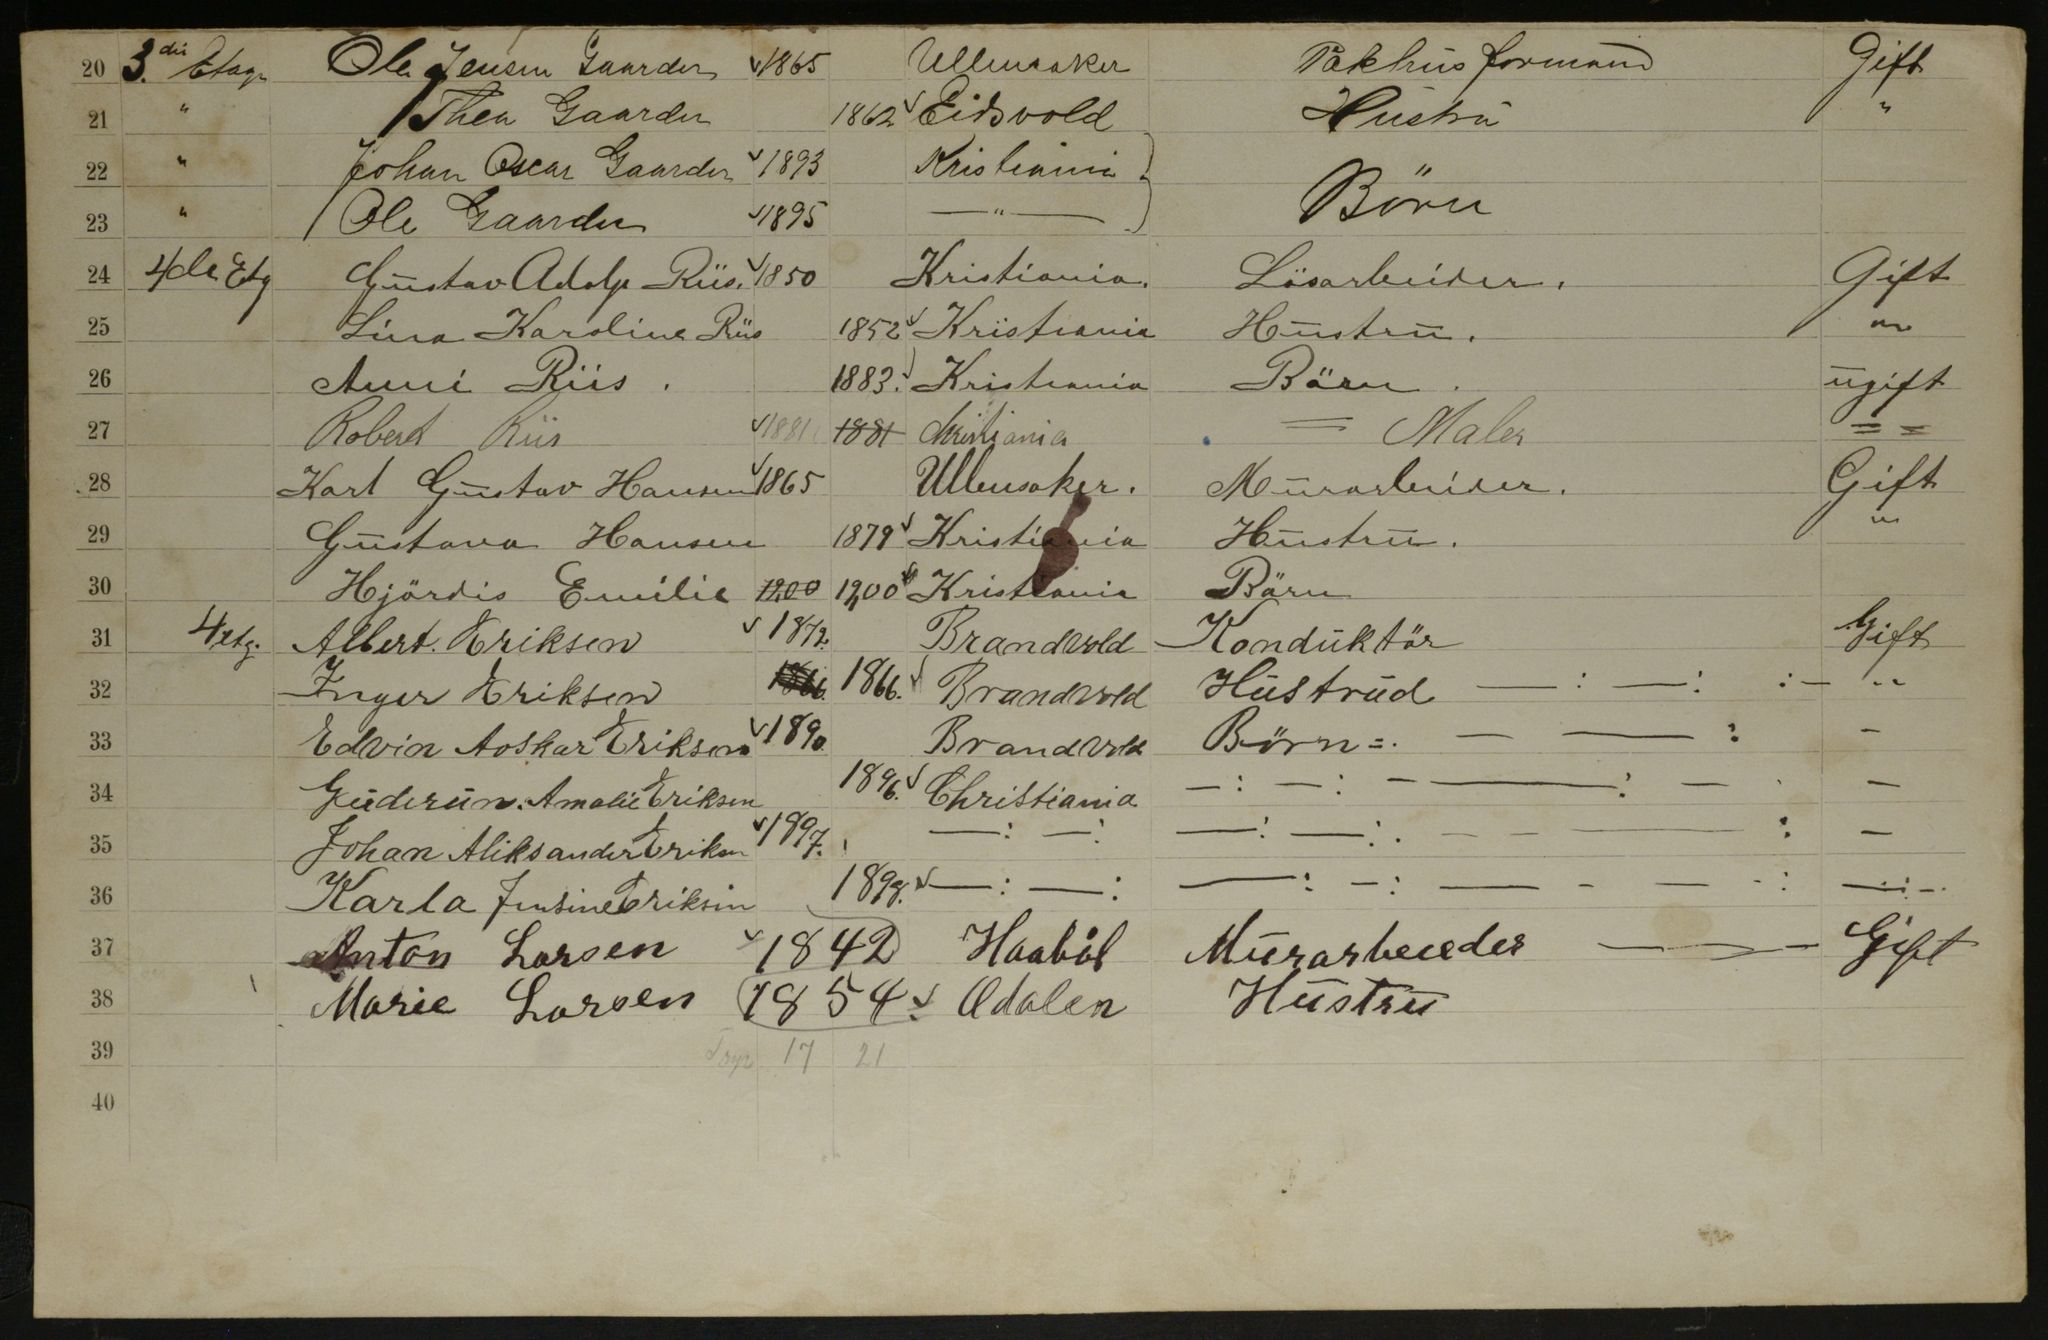 20 3.die Etage Ole Jensen Gaarder 1865 Ullensaker Pakhusformand Gift
21 " Thea Gaarder 1862 Eidsvold Hustru "
22 " Johan Oscar Gaarder 1893 Kristiania
23 " Ole Gaarder 1895 —"— Börn
24 4de Etg Gustav Adolf Riis. 1850 Kristiania. Lösarbeider. Gift
25 Lina Karoline Riis 1852 Kristiania Hustru. "
26 Anni Riis. 1883. Kristiania Börn. ugift
27 Robert Riis 1881 1881 Christiania = Maler = =
28 Karl Gustav Hansen 1865 Ullensaker. Murarbeider. Gift
29 Gustava Hansen 1879 Kristiania Hustru. "
30 Hjördis Emilie 1900 1900 Kristiania Börn
31 4 etg. Albert. Eriksen 1872. Brandvold Konduktör Gift
32 Inger Eriksen 1866. 1866. Brandvold Hustrud —:—: :— "
33 Edvin Aoskar Eriksen 1890. Brandvold Börn=. — —: —
34 Guderun. Amalie Eriksen 1896. Christiania —:—:— —:— —
35 Johan Aliksander Eriksen 1897. —:—: —:—:. — — —: —
36 Karla Jensine Eriksen 1898. —:—: —:—: — - — -: —:-
37 Anton Larsen 1842 Haabøl Murarbeeder — Gift
38 Marie Larsen 1854. Odalen Hustru
39 17 21
40